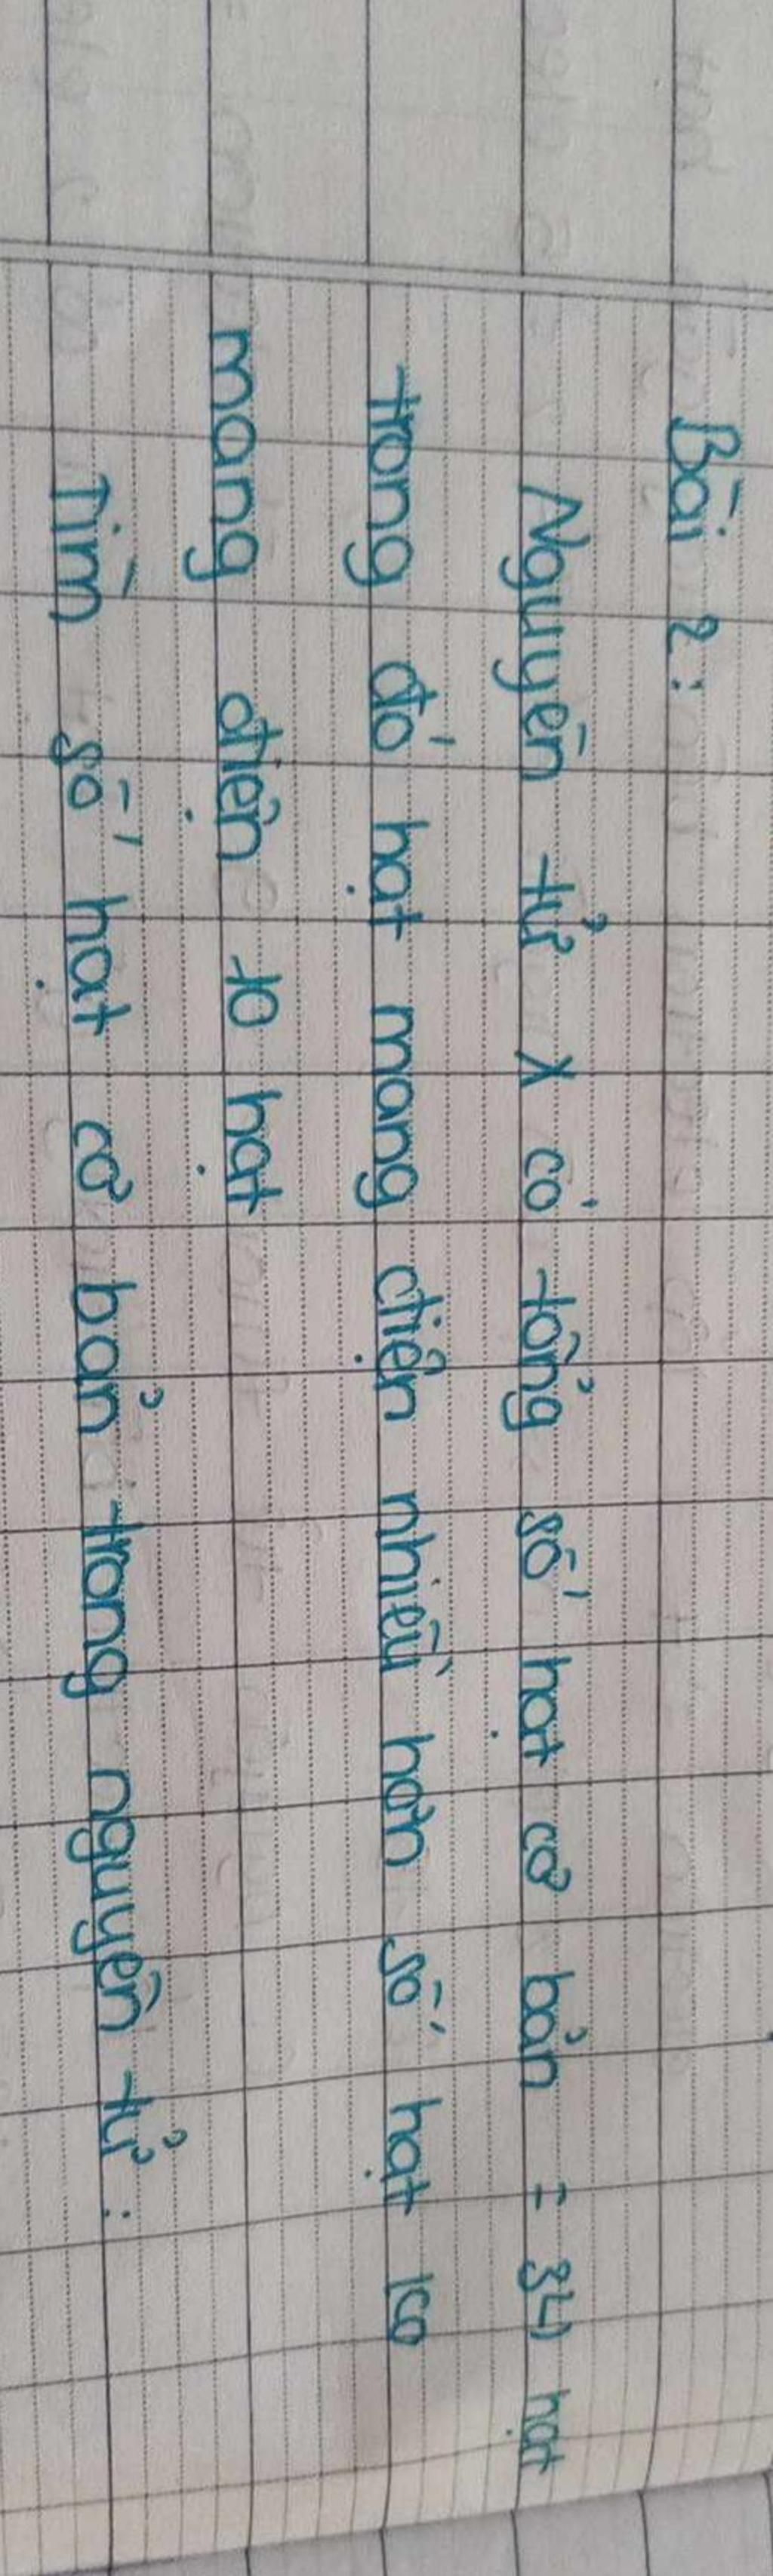 Bài 2:
Nguyên tử X có tổng số hạt cơ bản = 34 hạt
trong đó hạt mang điện nhiều hơn số hạt ko
mang điện 10 hạt
Tìm số hạt cơ bản trong nguyên tử :